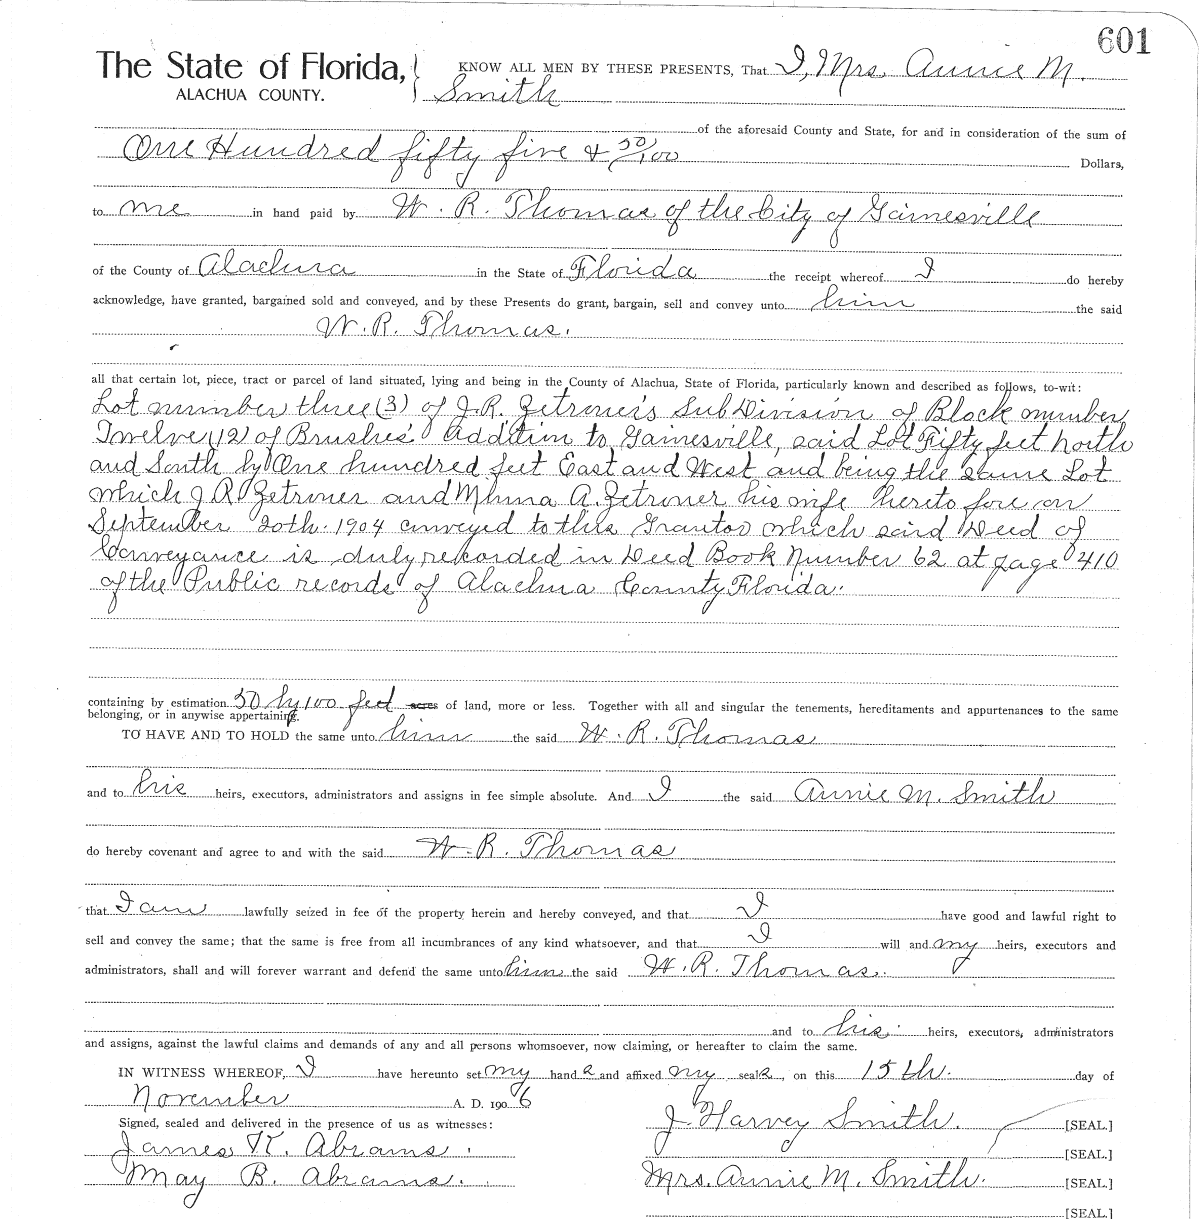 601
The State of Florida, KNOW ALL MEN BY THESE PRESENTS, That I, Mrs. Annie M.
ALACHUA COUNTY. Smith
of the aforesaid County and State, for and in consideration of the sum of
One Hundred fifty five & 50/100 Dollars,
to me in hand paid by W. R. Thomas of the City of Gainesville
of the County of Alachua in the State of Florida the receipt whereof I do hereby
acknowledge, have granted, bargained sold and conveyed, and by these Presents do grant, bargain, sell and convey unto him the said
W. R. Thomas.
all that certain lot, piece, tract or parcel of land situated, lying and being in the County of Alachua, State of Florida, particularly known and described as follows, to-wit:
Lot number three (3) of J.R. Zetrouer's SubDivision of Block number
Twelve (12) of Brushes' Addition to Gainesville, said Lot Fifty feet North
and South by One hundred feet East and West and being the same Lot
which J R Zetrouer and A. Zetrouer his wife hereto fore on
September 20th. 1904 conveyed to this Grantor which said Deed of
Conveyance is duly recorded in Deed Book Number 62 at page 410
of the Public records of Alachua County Florida.
containing by estimation 50 by 100 feet acres of land, more or less. Together with all and singular the tenements, hereditaments and appurtenances to the same
belonging, or in anywise appertaining.
TO HAVE AND TO HOLD the same unto him the said W. R. Thomas
and to his heirs, executors, administrators and assigns in fee simple absolute. And I the said Annie M. Smith
do hereby covenant and agree to and with the said W. R. Thomas
that I am lawfully seized in fee of the property herein and hereby conveyed, and that I have good and lawful right to
sell and convey the same; that the same is free from all incumbrances of any kind whatsoever, and that I will and my heirs, executors and
administrators, shall and will forever warrant and defend the same unto him the said W. R. Thomas.
and to his heirs, executors, administrators
and assigns, against the lawful claims and demands of any and all persons whomsoever, now claiming, or hereafter to claim the same.
IN WITNESS WHEREOF, I have hereunto set my hand s and affixed my seals, on this 15th. day of
November A. D. 1906
Signed, sealed and delivered in the presence of us as witnesses: J. Harvey Smith. [SEAL.]
James K. Abrams. [SEAL.]
May B. Abrams. Mrs. Annie M. Smith. [SEAL.]
[SEAL.]